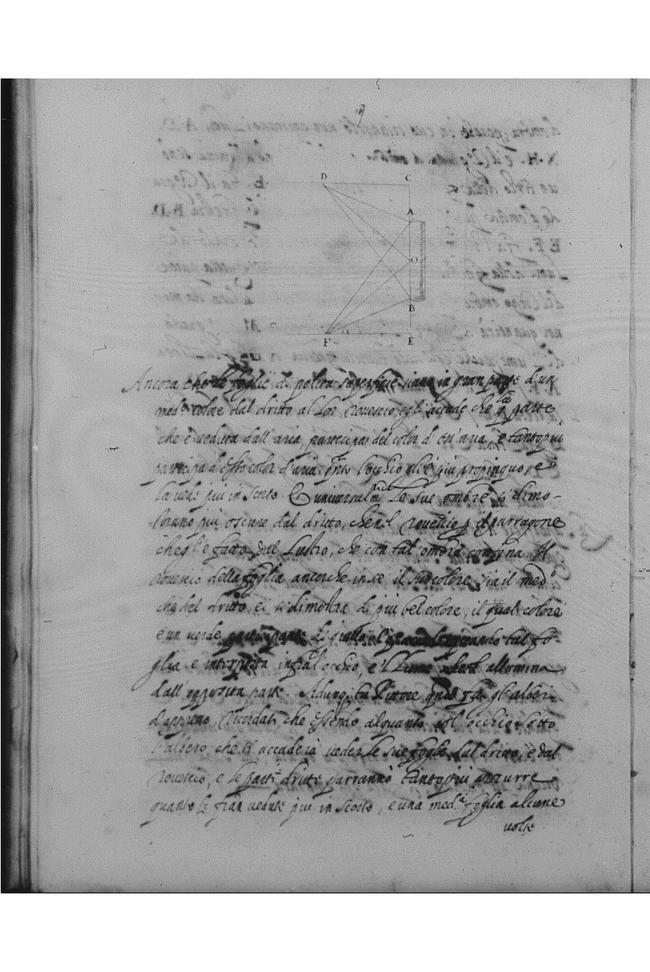 D C
A
O
B
F E
Ancora che le foglie di polita superficie siano in gran parte d'un
med.º colore dal dritto al lor rovescio, egli accade che q.lla parte
che è veduta dall'aria, participa del color d'es'aria, e tanto più
participa d'esso color d'aria, q.nto l'occhio gli è più propinquo, e
la vede più in scorto. E universalm.te le sue ombre si dimo-
strano più oscure dal dritto, che nel rovescio, p. il parragone
che gl'è fatto dal Lustro, che con tal ombra confina. Il
rovescio della foglia ancorche in se il suo colore sia il med.º
che del dritto, e si dimostra di più bel colore, il qual colore
è un verde participante di giallo, e questo accade quando tal fo-
glia è interposta infra l'occhio, e il lume che l'allumina
dall'opposita parte. Adunq. tu Pittore q.ndo fai gli alberi
d'appresso, ricordati che essendo alquanto col occhio sotto
l'albero, che ti accaderà veder le sue foglie dal dritto, e dal
rovescio, e le parti dritte parranno tanto più azzurre
quanto le fian vedute più in scorto, e una med.ª foglia alcune
volte